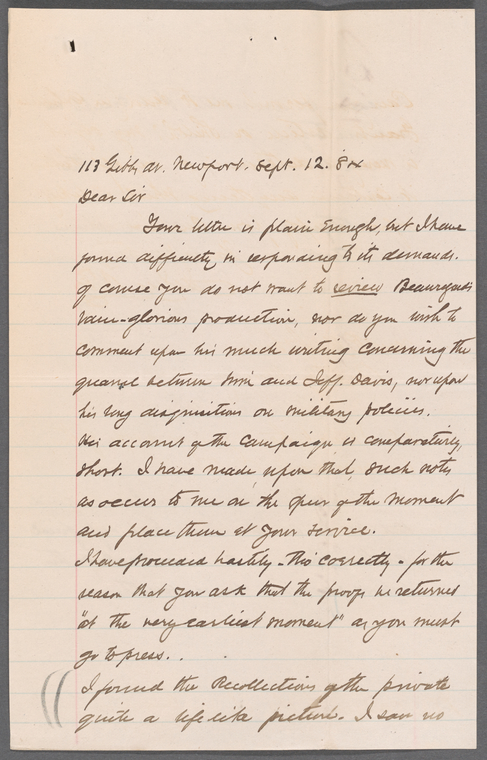 113 Gibbs Av. Newport. Sept. 12. 84
Dear Sir
Your letter is plain enough, but I have
found difficulty in responding to its demands.
Of course you do not want to review Beauregard's
vain-glorious production, nor do you wish to
comment upon his much writing concerning the
quarrel between him and Jeff. Davis, nor upon
his long disquisitions on military policies.
His account of the campaign is comparatively
short. I have made, upon that, such notes
as occur to me on the spur of the moment
and place them at your service.
I have proceeded hastily - tho' correctly - for the
reason that you ask that the proofs be returned
"at the very earliest moment" as you must
go to press..
I found the Recollections of the private
quite a life like picture. I saw no